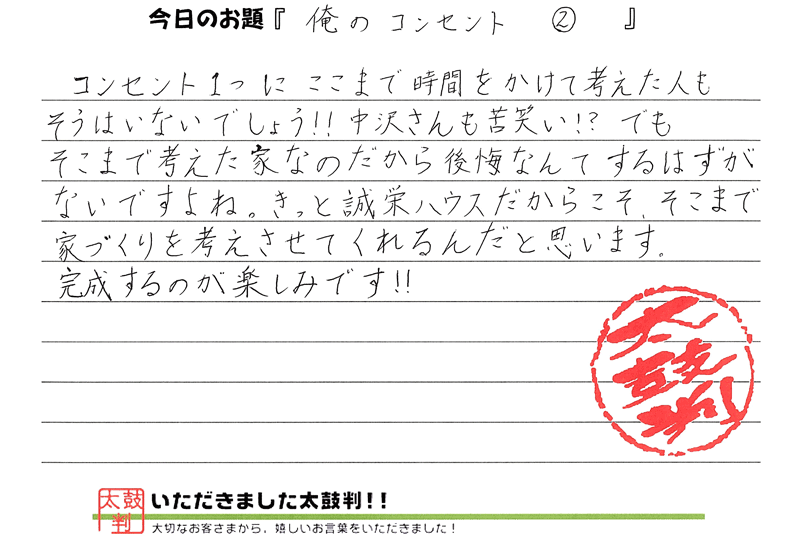 今日のお題『 俺のコンセント ② 』
コンセント1つにここまで時間をかけて考えた人も
そうはいないでしょう!!中沢さんも苦笑い!?でも
そこまで考えた家なのだから後悔なんてするはずが
ないですよね。きっと誠栄ハウスだからこそ、そこまで
家づくりを考えさせてくれるんだと思います。
完成するのが楽しみです!!
太鼓判
太鼓判
いただきました太鼓判!!
大切なお客さまから、嬉しいお言葉をいただきました!